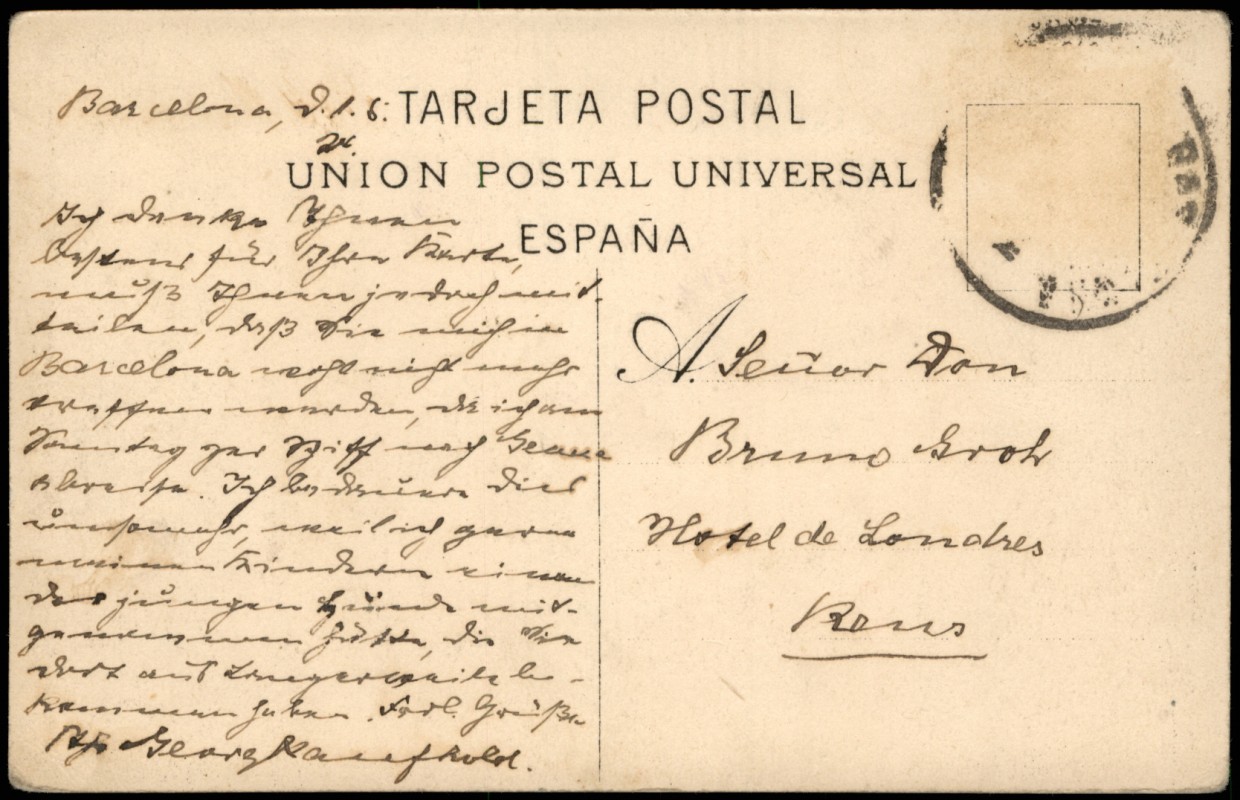 Barcelona, d. 1. 6.
24.
TARJETA POSTAL
UNION POSTAL UNIVERSAL
ESPAÑA
Ich danke Ihnen
bestens für Ihre Karte,
muß Ihnen jedoch mit-
teilen, daß Sie mich in
Barcelona wohl nicht mehr
treffen werden, da ich am
Sonntag per Schiff nach Genua
abreise. Ich bedauere dies
umsomehr, weil ich gerne
meinen Kindern einen
der jungen Hunde mit-
genommen hätte, die Sie
dort aus Langerweile be-
kommen haben. Frdl. Grüße
Ihr Georg
A. Señor Don
Bruno Groh
Hotel de Londres
Reus